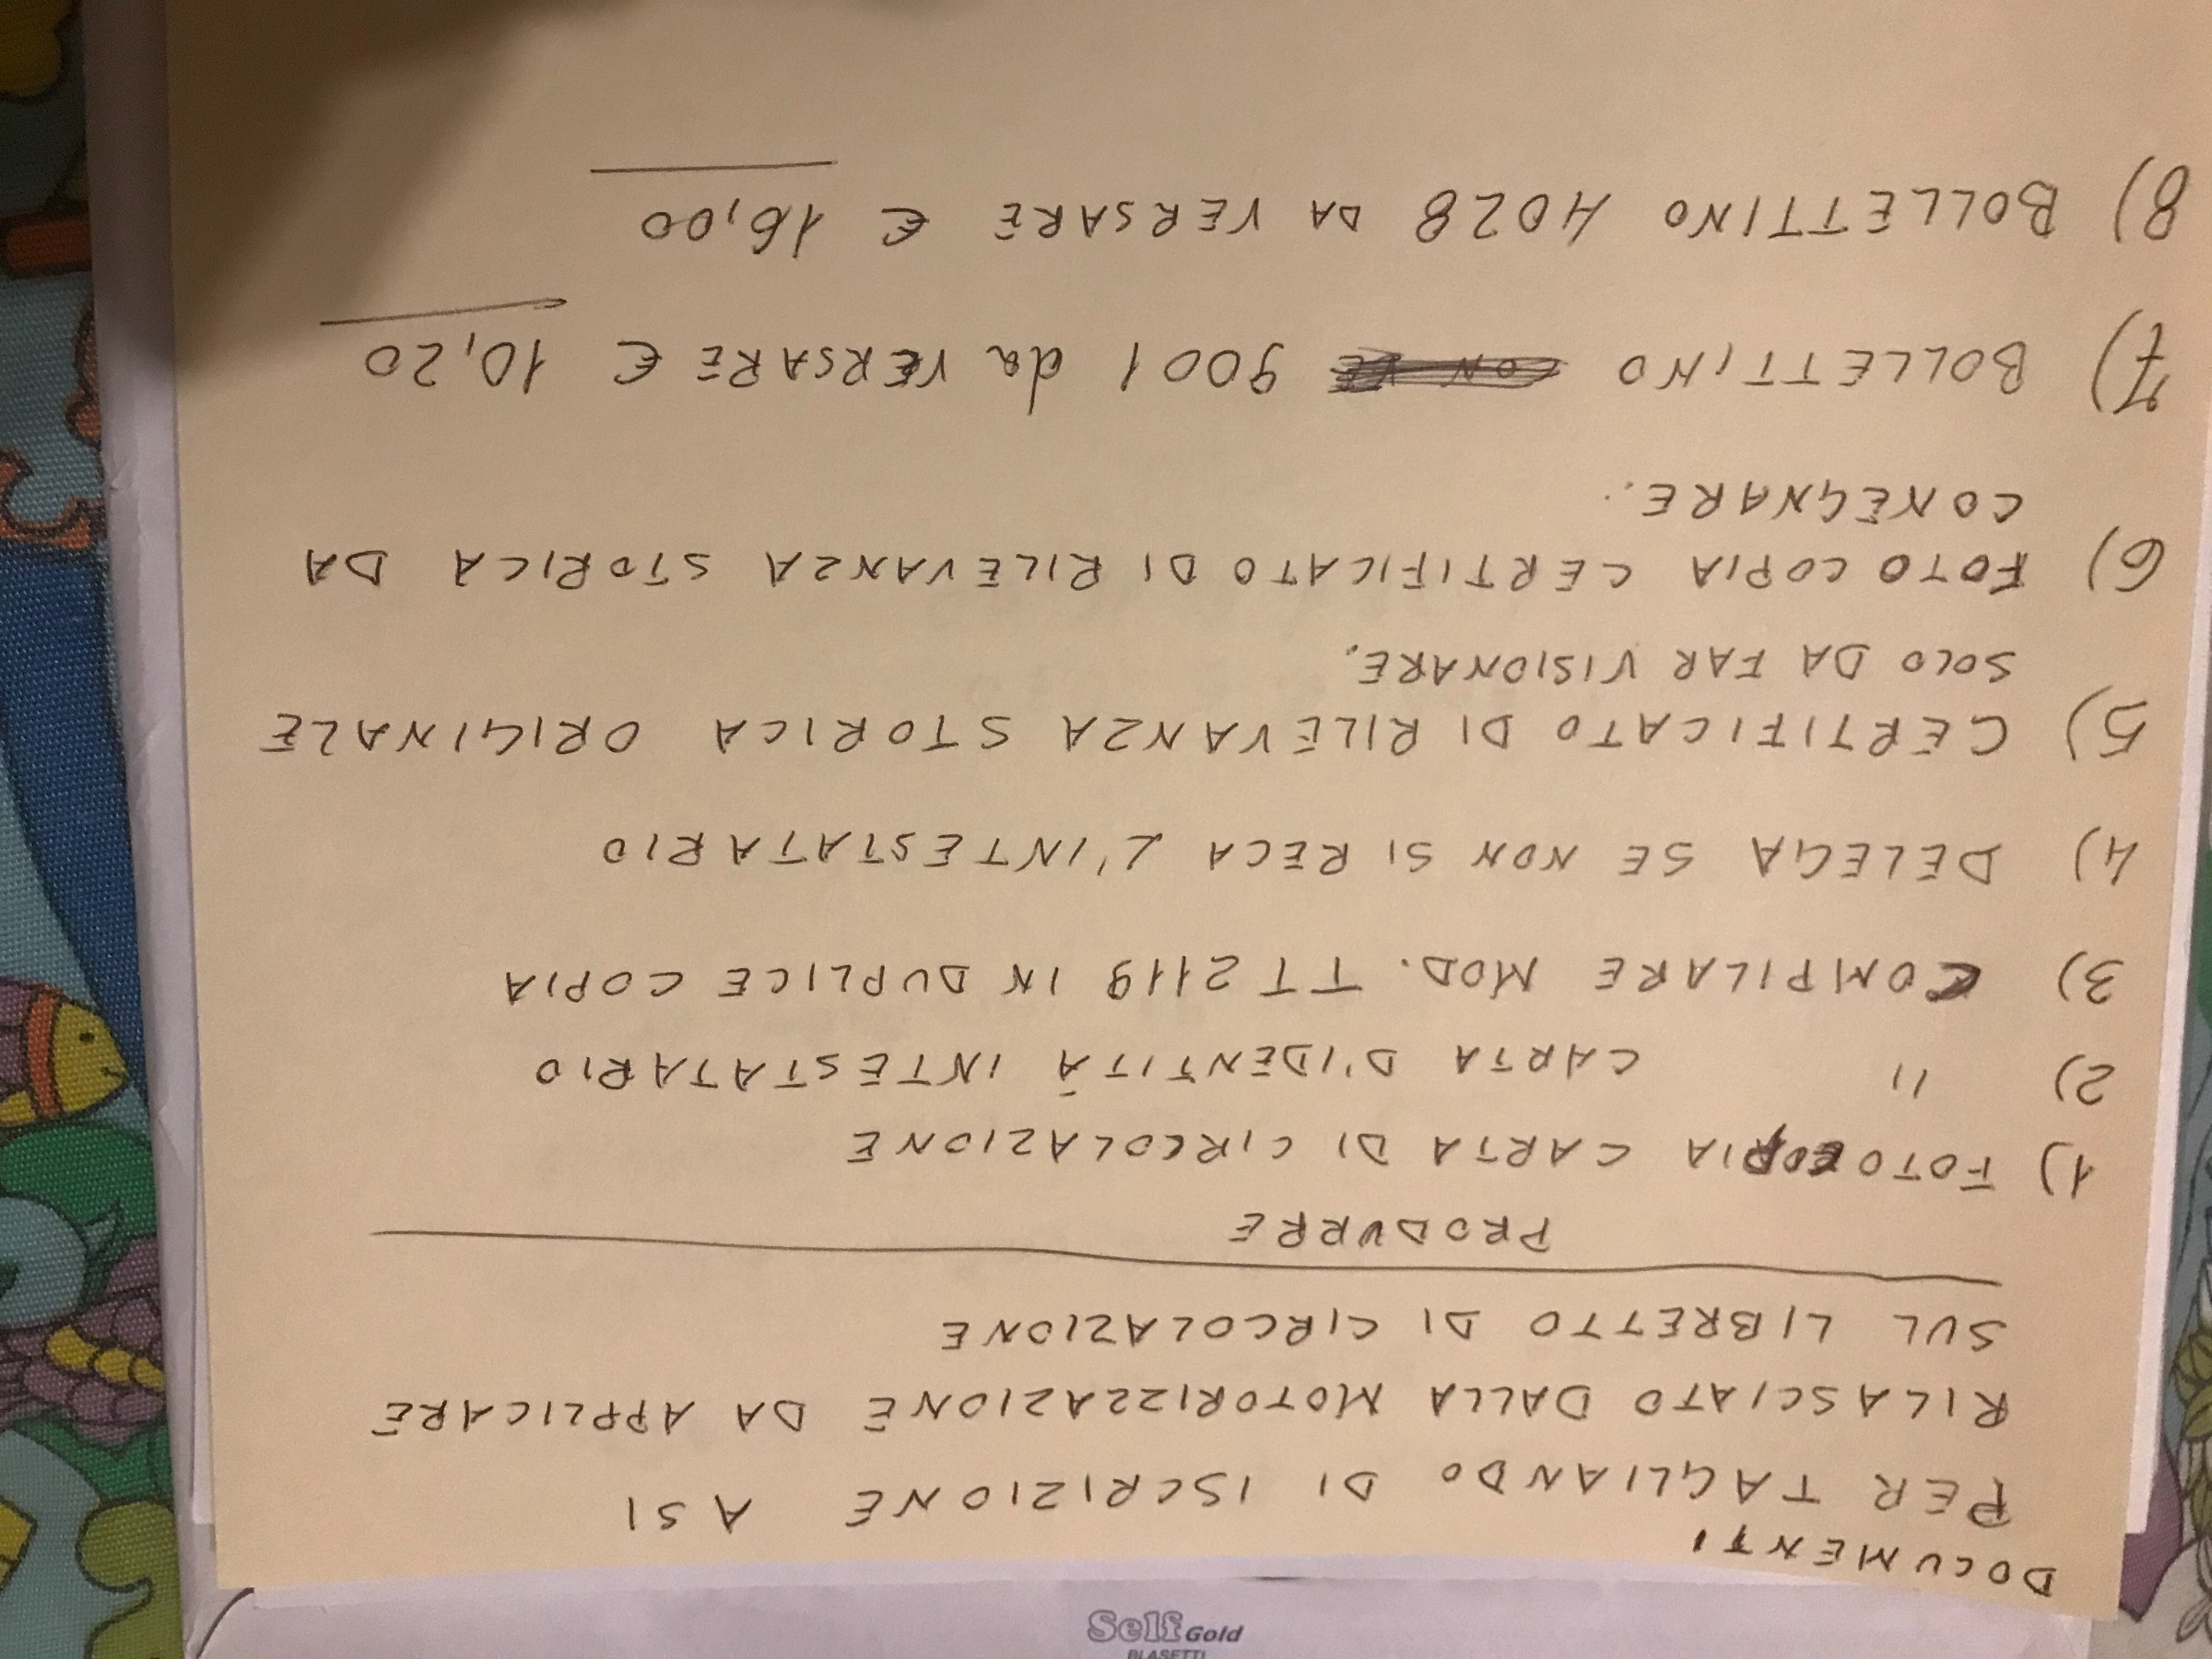 DOCUMENTI
PER TAGLIANDO DI ISCRIZIONE ASI
RILASCIATO DALLA MOTORIZZAZIONE DA APPLICARE
SUL LIBRETTO DI CIRCOLAZIONE
PRODURRE
1) FOTOCOPIA CARTA DI CIRCOLAZIONE
2) " CARTA D'IDENTITÀ INTESTATARIO
3) COMPILARE MOD. TT2119 IN DUPLICE COPIA
4) DELEGA SE NON SI RECA L'INTESTATARIO
5) CERTIFICATO DI RILEVANZA STORICA ORIGINALE
SOLO DA FAR VISIONARE.
6) FOTO COPIA CERTIFICATO DI RILEVANZA STORICA DA
CONEGNARE.
7) BOLLETTINO 9001 da VERSARE € 10,20
8) BOLLETTINO 4028 DA VERSARE € 16,00
Self Gold
BLASETTI